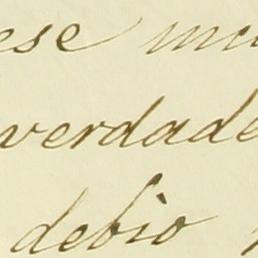 ese
verdade
debio